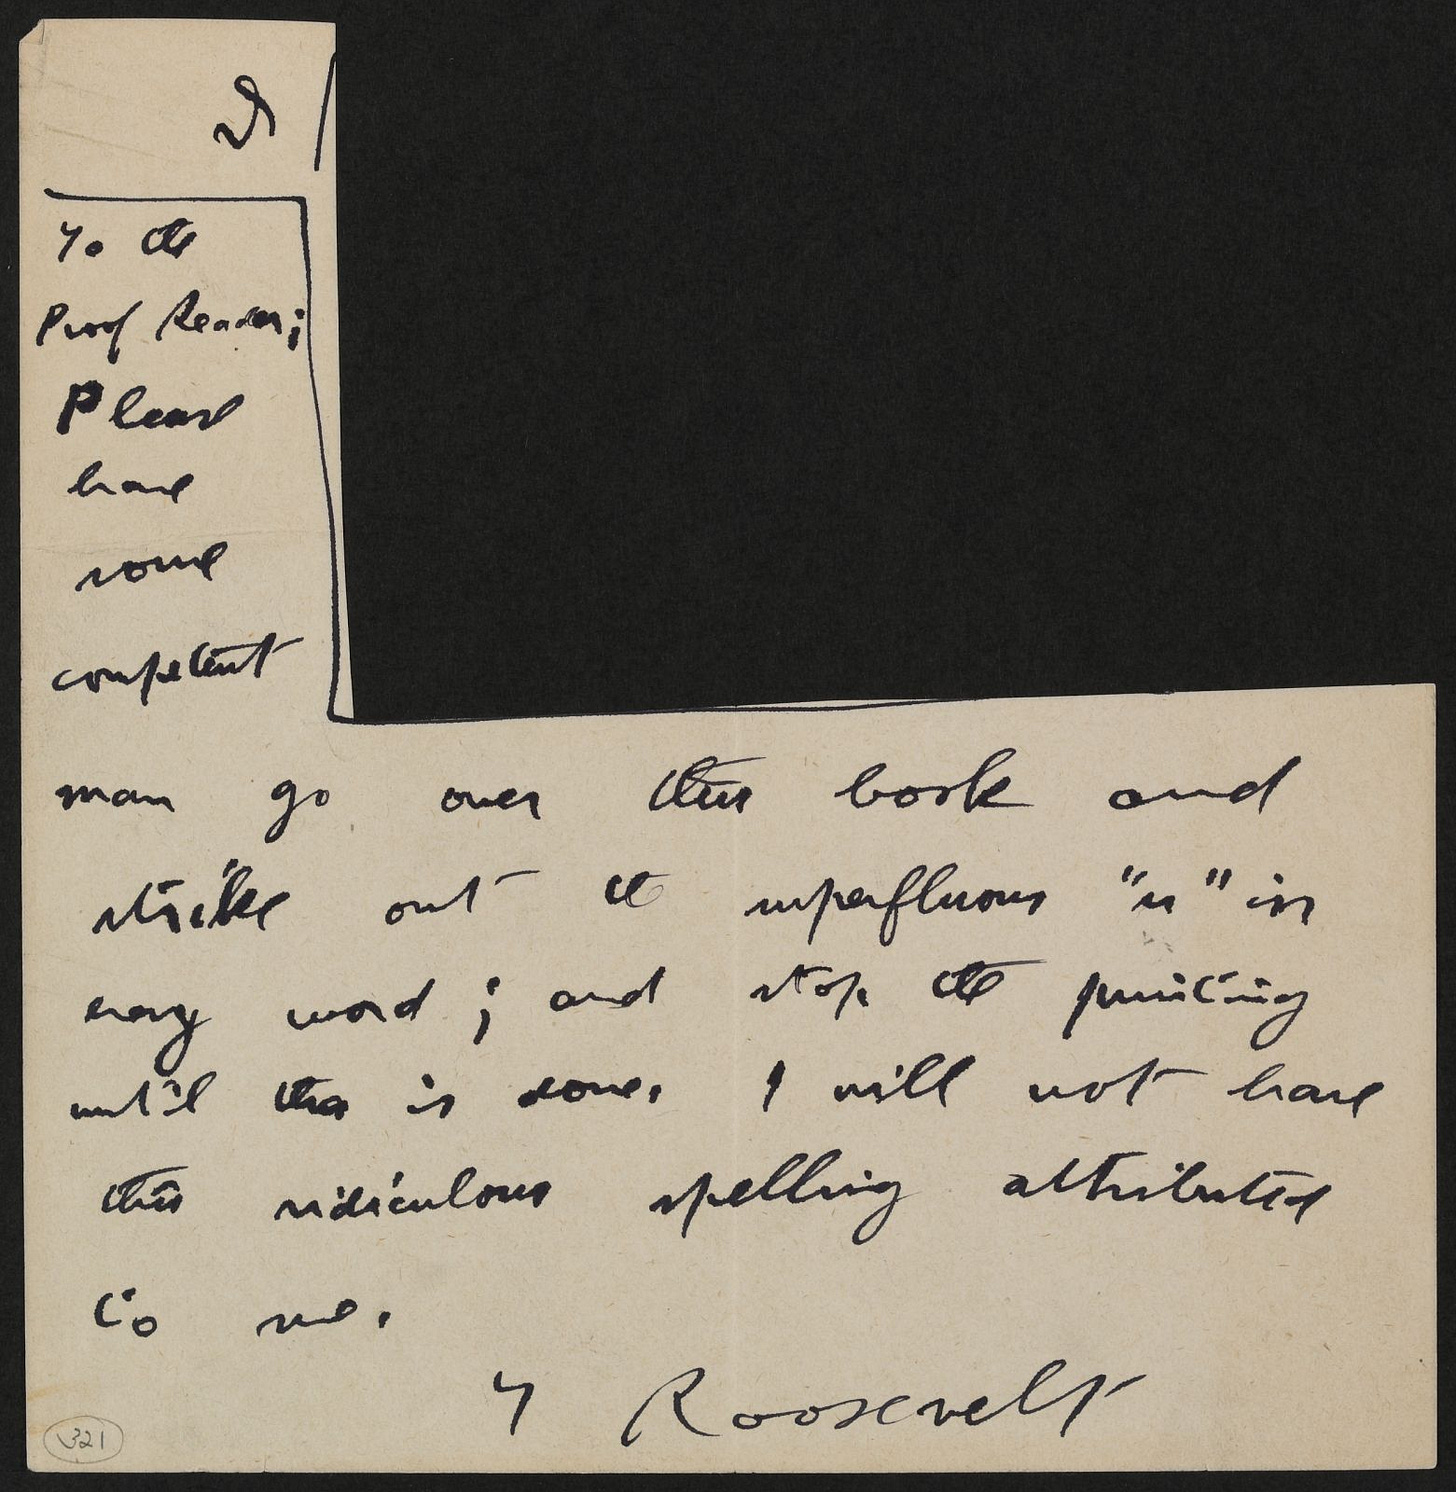 To the
Proof Reader;
Please
have
some
competent
man go over this book and
strike out the superfluous "u" in
every word; and stop the printing
until this is done. I will not have
this ridiculous spelling attributed
to me.
T Roosevelt
321